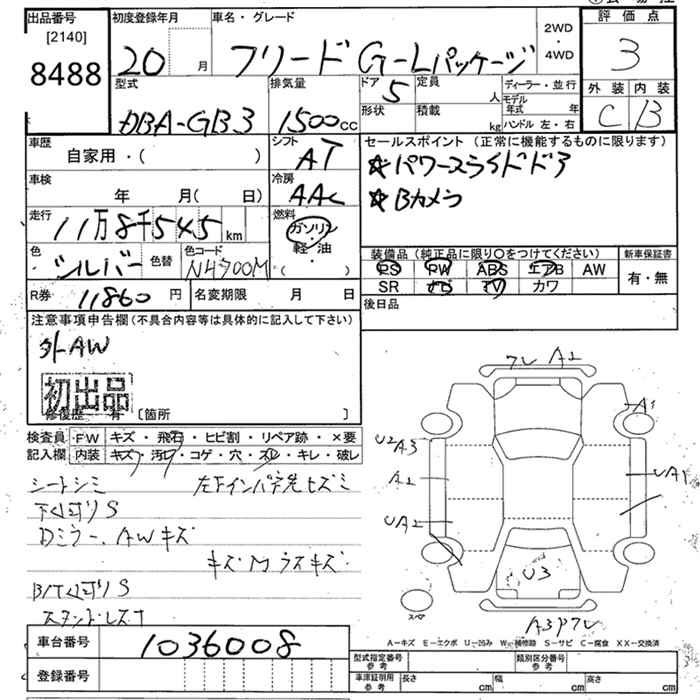 出品番号
[2140]
8488
初度登録年月
20 月
車名・グレード
フリード G-Lパッケージ
2WD
・
4WD
評価点
3
型式
DBA-GB3
排気量
1500cc
ドア
5
定員
人
形状
積載
kg
ディーラー・並行
モデル年式 年
ハンドル 左・右
外装 内装
C B
車歴
自家用・( )
シフト
AT
車検
年 月( 日)
冷房
AAC
走行
11万8千545 km
燃料
ガソリン
軽・油
( )
色
シルバー
色替
色コード
NH700M
R券 11860 円
名変期限 月 日
セールスポイント(正常に機能するものに限ります)
☆パワースライドドア
☆Bカメラ
装備品(純正品に限り○をつけてください)
PS PW ABS エアB AW
SR ナビ TV カワ
新車保証書
有・無
後日品
注意事項申告欄(不具合内容等は具体的に記入して下さい)
外AW
初出品
修復歴 有 [箇所 ]
検査員記入欄
FW キズ・飛石・ヒビ割・リペア跡・×要
内装 キズ・汚レ・コゲ・穴・スレ・キレ・破レ
シートシミ
下廻りS
Dミラー、AWキズ
キズM ラスキズ
フレ A2
A1
U2 A3
A2
UA2
UA1
U3
A3 フレ
スペア
A-キズ E-エクボ U-凹み W-補修跡 S-サビ C-腐食 XX-交換済
車台番号 1036008
登録番号
型式指定番号
参考
類別区分番号
参考
車庫証明用
参考
長さ cm 幅 cm 高さ cm